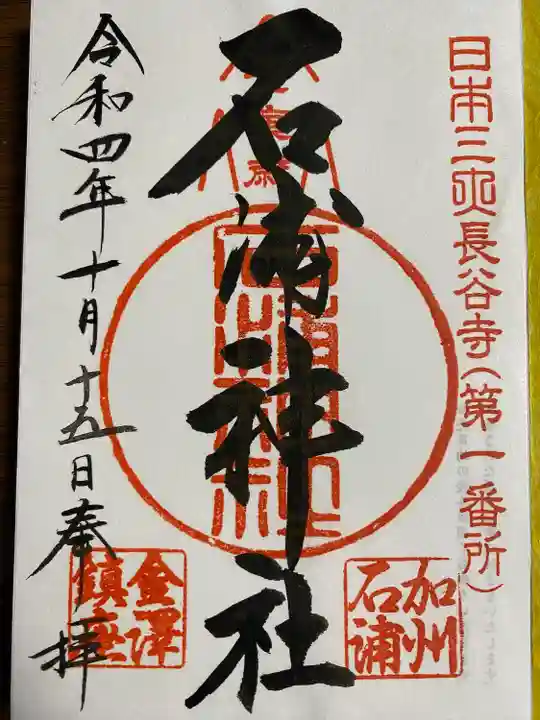 日本三大長谷寺(第一番所)
石浦神社
令和四年十月十五日奉拝
加州
石浦
金澤
鎮座
石浦神社